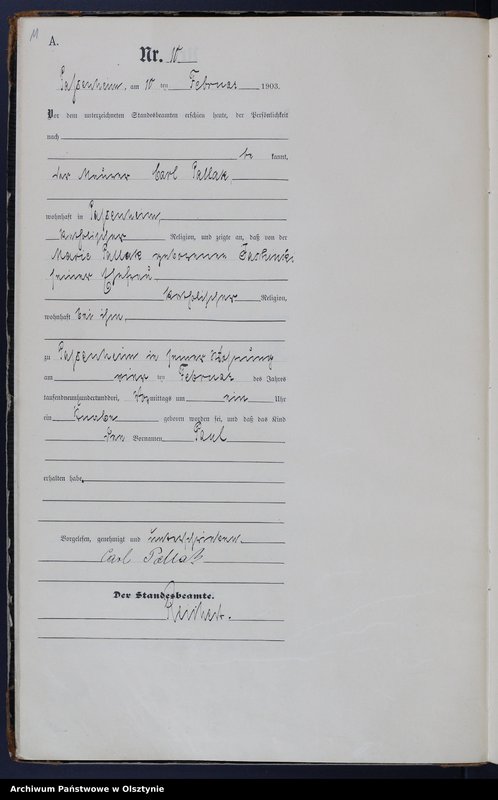 11
A.
Nr. 10
Passenheim, am 10 ten Februar 1903.
Vor dem unterzeichneten Standesbeamten erschien heute, der Persönlichkeit
nach
be kannt,
der Maurer Carl Pallak,
wohnhaft in Passenheim,
katholischer Religion, und zeigte an, daß von der
Marie Pallak geborenen
seiner Ehefrau
katholischer Religion,
wohnhaft bei ihm,
zu Passenheim in seiner Wohnung
am vier ten Februar des Jahres
tausendneunhundertunddrei, Vormittags um ein Uhr
ein Knabe geboren worden sei, und daß das Kind
den Vornamen Paul
erhalten habe.
Vorgelesen, genehmigt und unterschrieben.
Carl Pallak
Der Standesbeamte.
Archiwum Państwowe w Olsztynie